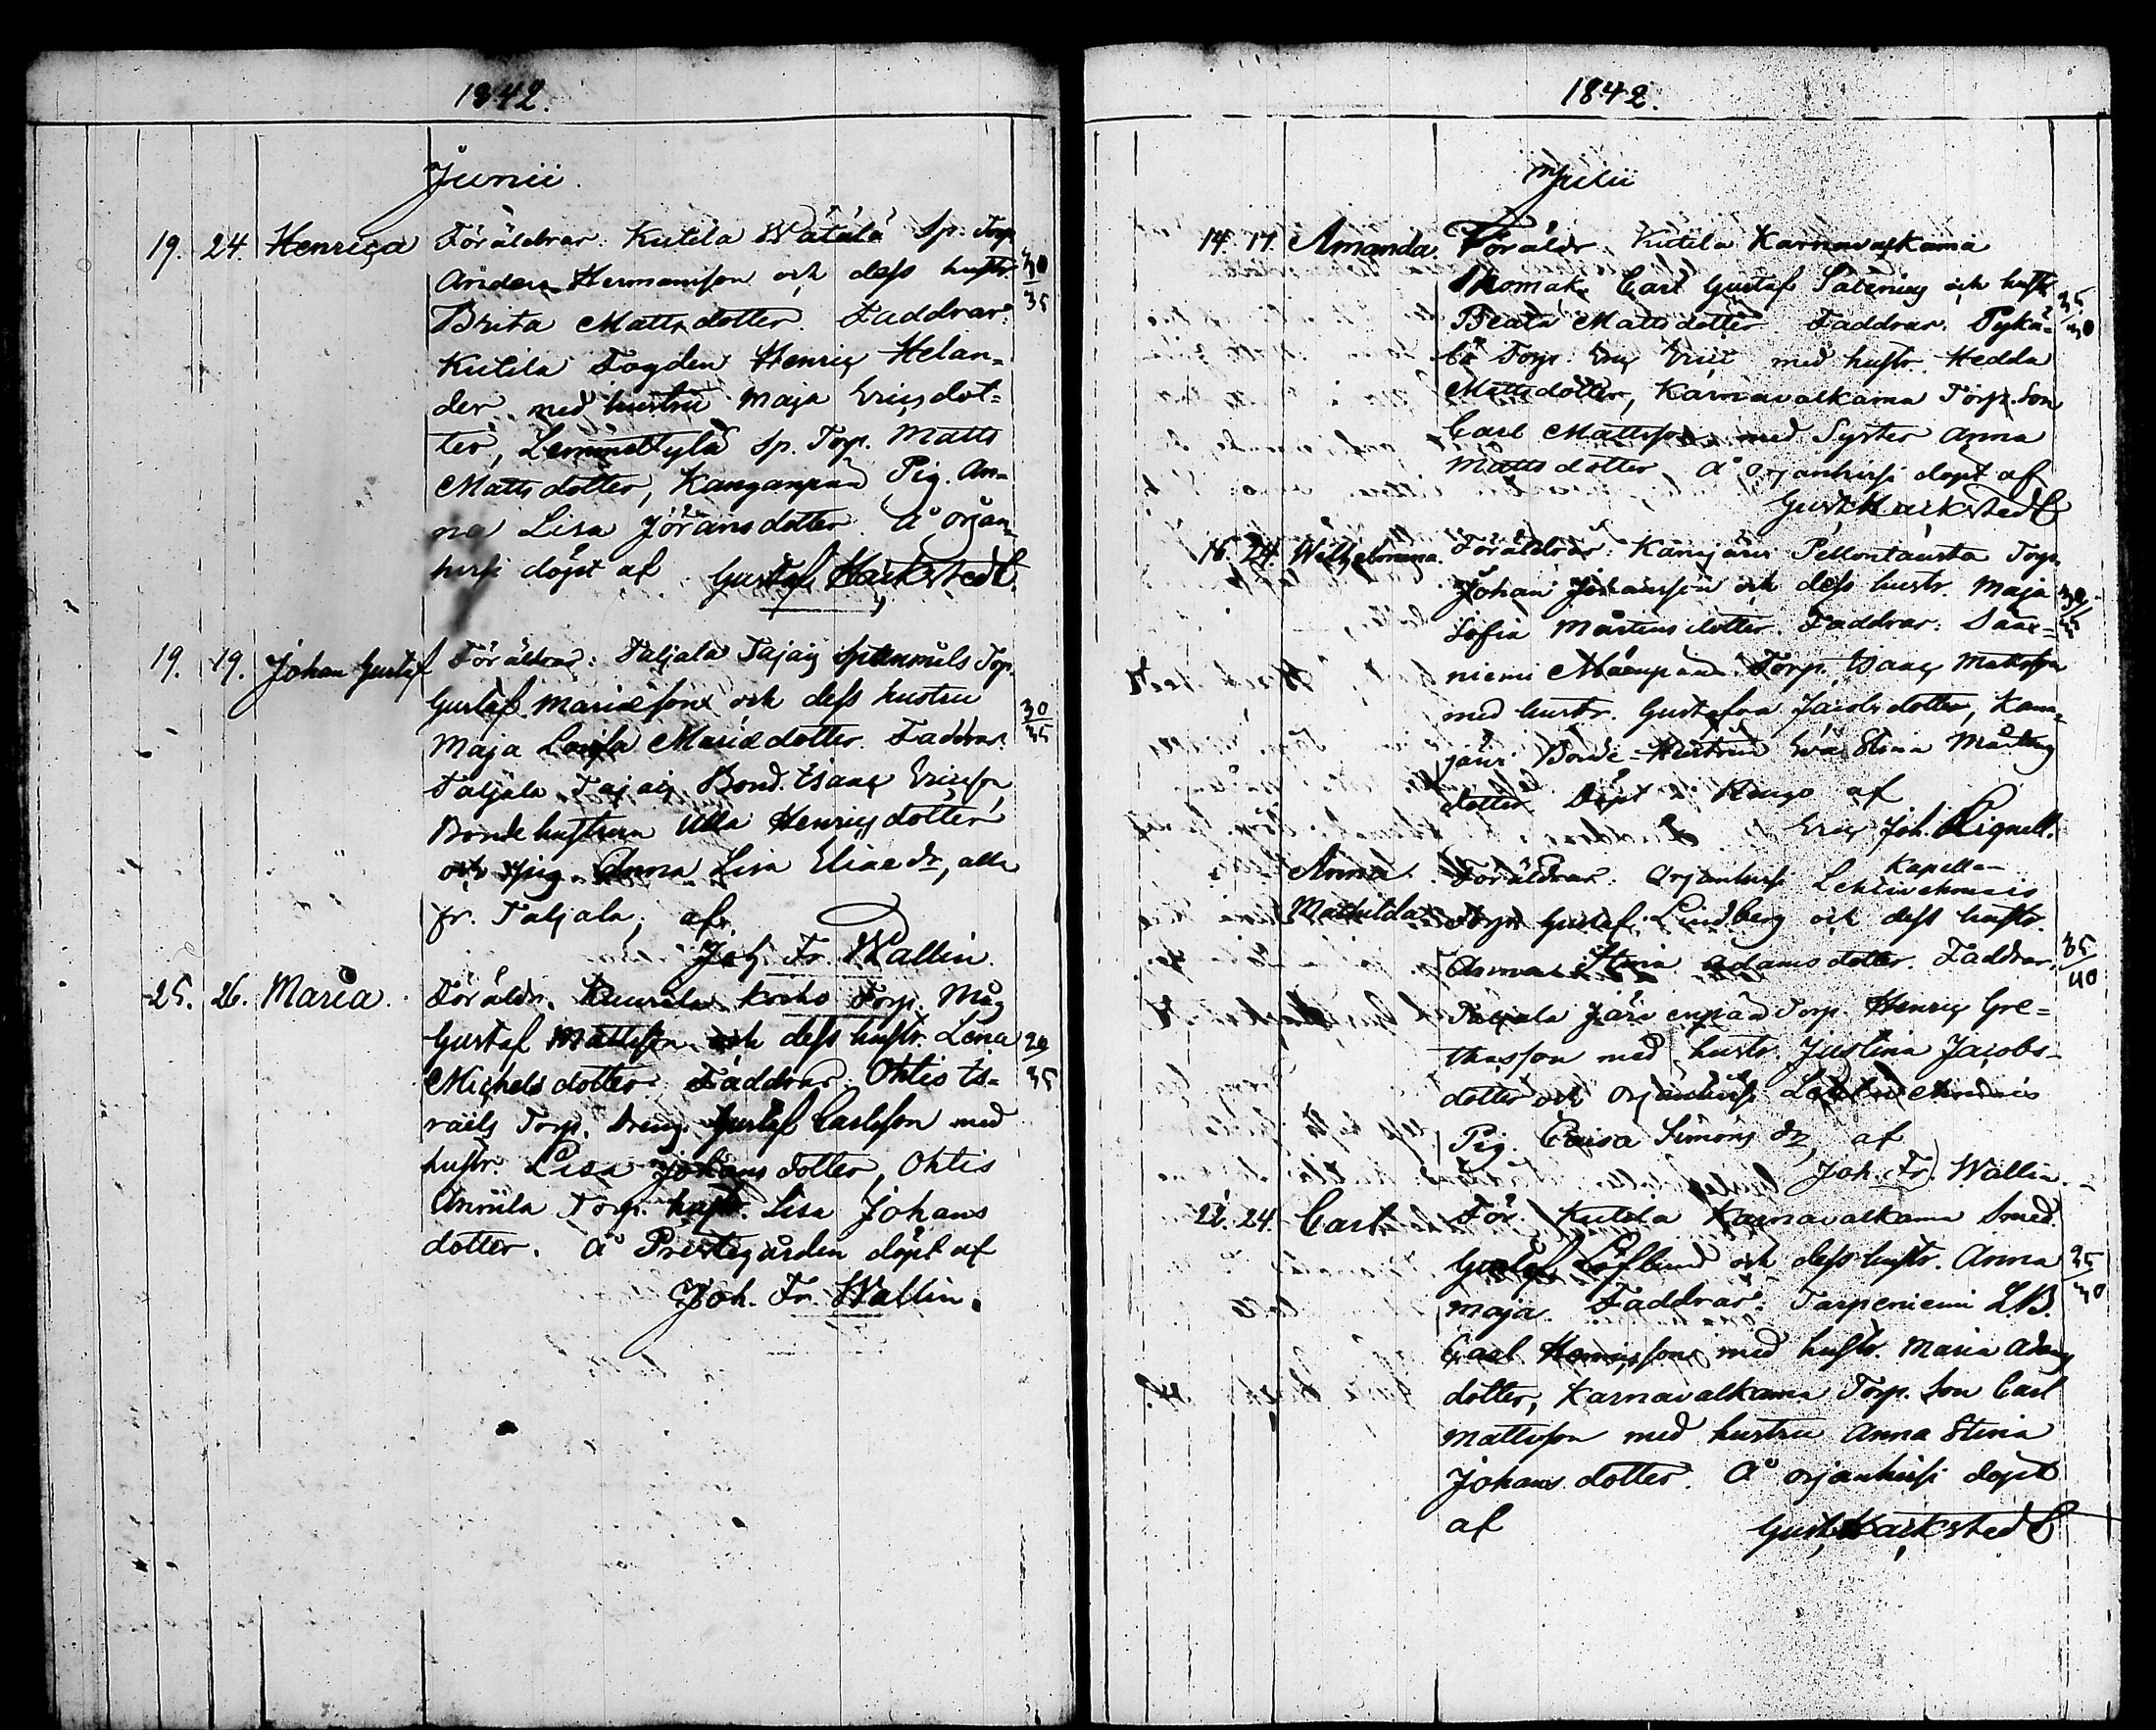 1842.
Junii.
19. 24. Henrica Föräldrar: Kutila Sp. Torp.
Anders Hermansson och dess hustr. 30/35
Brita Mattsdotter. Faddrar:
Kutila Fogden Henric Helan-
der med hustru Maja Ericsdot-
ter, Lemmettylä Sp. Torp. Matts
Mattsdotter, Kanganpää Pig. An-
na Lisa Jöransdotter. Å Orjan-
hirsi döpt af Gustaf Hackstedt.
19. 19. Johan Gustaf Föräldrar: Taljala Sp Torp.
Gustaf Mariæson och dess hustru 30/35
Maja Lovisa Mariædotter. Faddrar:
Taljala Bond. Isaac Ericson,
Bondehustrun Ulla Henricsdotter
och Pig. Anna Lisa Eliaedr, alla
fr. Taljala, af
Joh. Fr. Wallin.
25. 26. Maria. Föräldr. Torp. Måg
Gustaf Mattsson och dess hustr. Lena 29/35
Michelsdotter. Faddrar: Ohtis Is-
raels Torp. Dreng. Gustaf Carlsson med
hustr. Lisa Johansdotter, Ohtis
Annila Torp. hustr. Lisa Johans
dotter. Å Prestegården döpt af
Joh. Fr. Wallin.
1842.
Julii
14. 17. Amanda. Föräldr. Kutila Karnavalkama
Skomak. Carl Gustaf och hustr
Beata Mattsdotter Faddrar: 35/30
Torp. Eric Eric med hustr. Hedda
Mattsdotter, Karnavalkama Torp. Son
Carl Mattsson med Syster Anna
Mattsdotter Å Orjanhirsi döpt af
Gust. Hackstedt
16. 24. Wilhelmina. Föräldrar: Kanjäri Pellontausta Torp.
Johan Johansson och dess hustr. Maja
Sofia Mårtensdotter. Faddrar: Sääx-
niemi Torp. Isaac Mattsson
med hustr. Gustafva Jacobsdotter, Kan-
järi Bonde-Hustrun Eva Stina Mårtens
dotter Döpt i af
Eric Joh. Lignell.
Anna Föräldrar: Orjanhirsi Kapell-
Mathilda Torp Gustaf Lindberg och dess hustr.
Anna Stina Adamsdotter. Faddrar: 35/40
Taljala Järvenpää Torp. Henric Gre-
thasson med hustr. Justina Jacobs-
dotter och Orjanhirsi
Pig. Caisa Simons dr, af
Joh. Fr. Wallin.
22. 24. Carl För. Kutila Karnavalkama Smed
Gustaf Löflund och dess hustr. Anna 25/30
Maja. Faddrar: Tarpeniemi L.B.
Carl Henricsson med hustr. Maria Adams
dotter, Karnavalkama Torp. Son Carl
Mattsson med hustru Anna Stina
Johansdotter. Å Orjanhirsi döpt
af Gust. Hackstedt